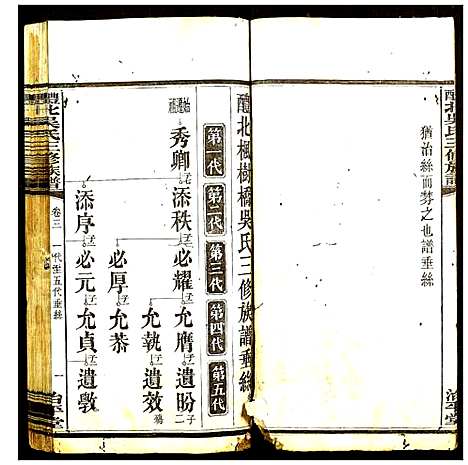 醴北吳氏三修族譜
猶治絲而棼之也譜垂絲
治平堂
醴北楓樹橋吳氏三修族譜垂絲
第一代 第二代 第三代 第四代 第五代
秀卿 添秩 必耀 允膺 遺盼
允執 遺效
必厚 允恭
添序 必元 允貞 遺斆
醴北吳氏三修族譜 卷三 一代至五代垂絲 一 治平堂